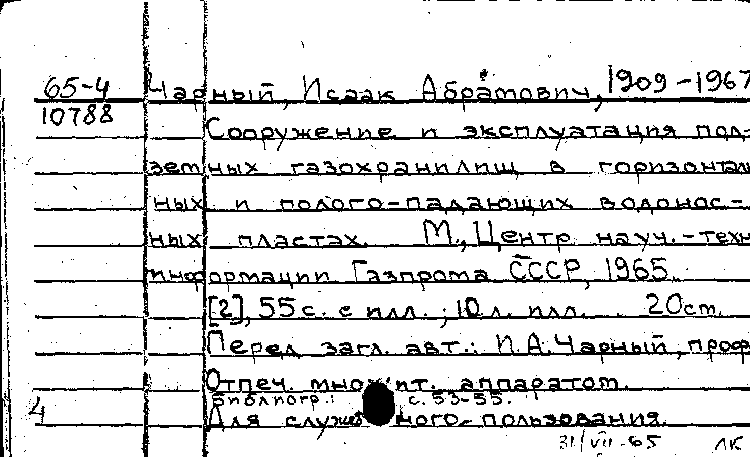 65-4 Чарный, Исаак Абрамович, 1909-1967
10788
Сооружение и эксплуатация под-
земных газохранилищ в горизонталь
ных и полого-падающих водонос-
ных пластах. М., Центр. науч.-техн
информации Газпрома СССР, 1965.
[2], 55 с. с илл.; 10 л. илл. 20 см.
Перед загл. авт.: И.А. Чарный, проф
Отпеч. множит. аппаратом.
Библиогр.: с. 53-55.
4 Для служебного пользования.
31/VII-65 ЛК